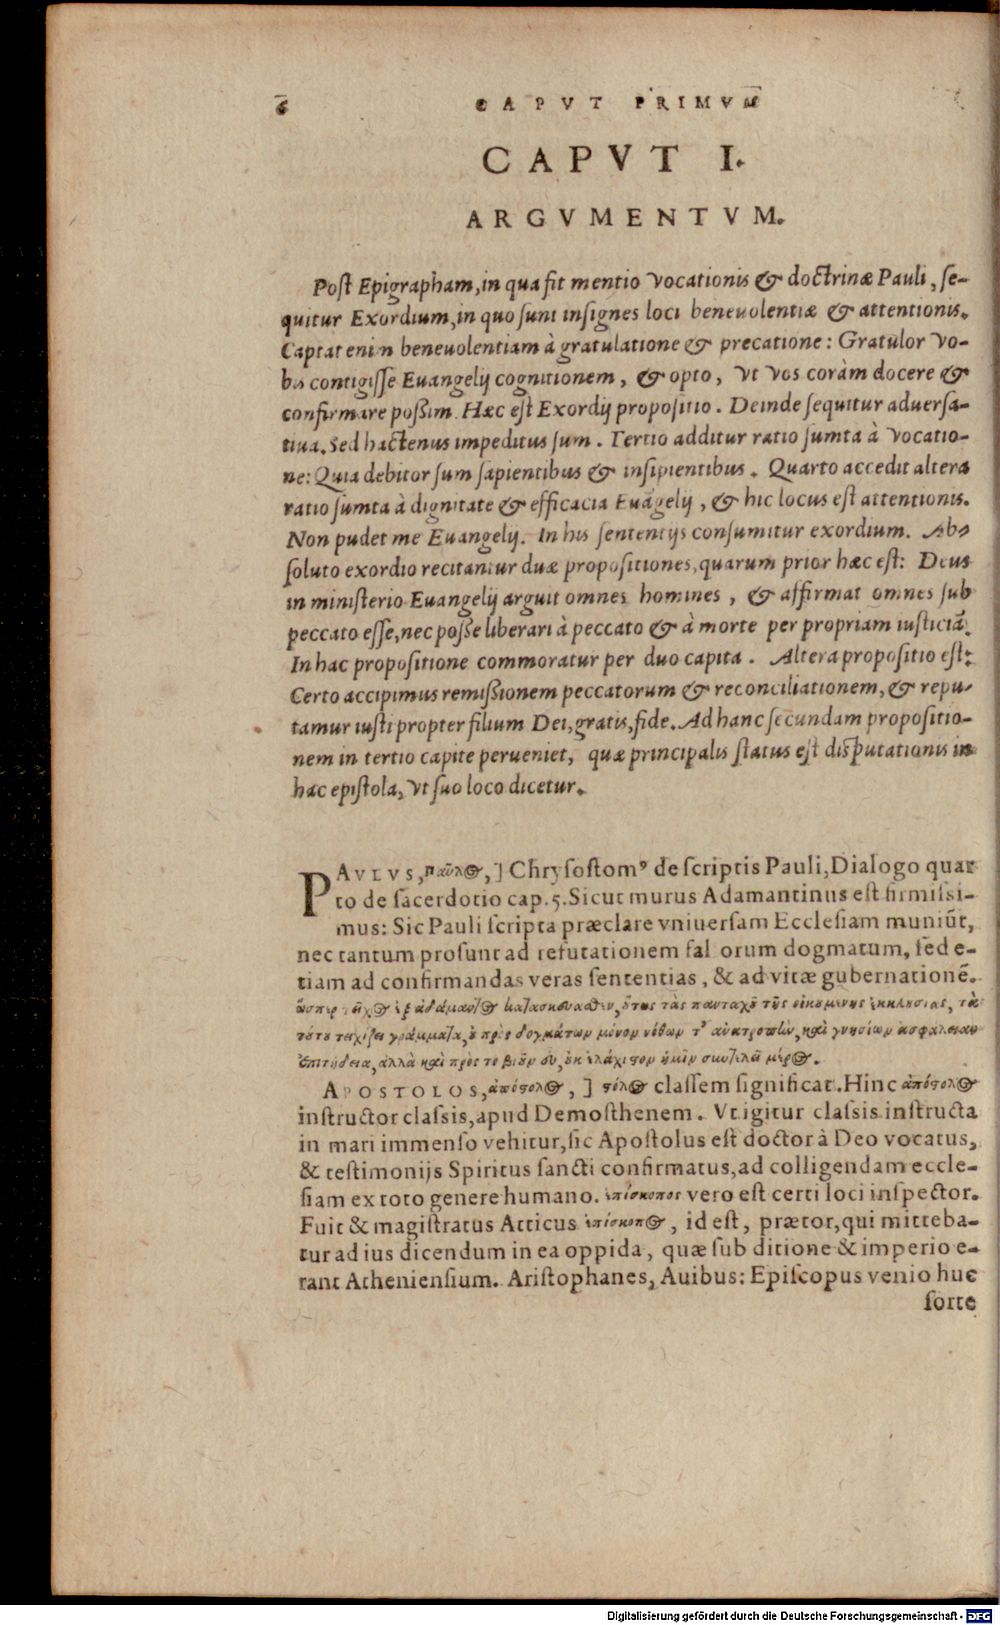 6 CAPVT PRIMVM
CAPVT I.
ARGVMENTVM.
Post Epigrapham, in qua fit mentio vocationis & doctrinæ Pauli, se-
quitur Exordium, in quo sunt insignes loci beneuolentiæ & attentionis.
Captat enim beneuolentiam à gratulatione & precatione: Gratulor vo-
bis contigisse Euangelij cognitionem, & opto, vt vos coràm docere &
confirmare possim. Hæc est Exordij propositio. Deinde sequitur aduersa-
tiua. Sed hactenus impeditus sum. Tertio additur ratio sumta à vocatio-
ne: Quia debitor sum sapientibus & insipientibus. Quarto accedit altera
ratio sumta à dignitate & efficacia Euāgelij, & hic locus est attentionis.
Non pudet me Euangelij. In his sententijs consumitur exordium. Ab-
soluto exordio recitantur duæ propositiones, quarum prior hæc est: Deus
in ministerio Euangelij arguit omnes homines, & affirmat omnes sub
peccato esse, nec posse liberari à peccato & à morte per propriam iusticiā.
In hac propositione commoratur per duo capita. Altera propositio est:
Certo accipimus remissionem peccatorum & reconciliationem, & repu-
tamur iusti propter filium Dei, gratis, fide. Ad hanc secundam propositio-
nem in tertio capite perueniet, quæ principalis status est disputationis in
hac epistola, vt suo loco dicetur.
PAVLVS, παῦλος, ] Chrysostomꝰ de scriptis Pauli, Dialogo quar
to de sacerdotio cap. 5. Sicut murus Adamantinus est firmissi-
mus: Sic Pauli scripta præclare vniuersam Ecclesiam muniūt,
nec tantum prosunt ad refutationem fal orum dogmatum, sed e-
tiam ad confirmandas veras sententias, & ad vitæ gubernationē.
ὥσπερ τεῖχος ἐξ ἀδάμαντος κατασκευαθὲν, ὅτως τὰς πανταχȣ͂ τῆς οἰκȣμένης ἐκκλησίας, τὰ
τότȣ τειχίζει γράμματα, ȣ πρὸς δογμάτων μόνον νόθων τ' ἀνατροπὴν, καὶ γνησίων ἀσφάλειαν
ἐπιτήδεια, ἀλλὰ καὶ πρὸς τὸ βιοῦν εὖ, ȣκ ἐλάχιστον ἡμῖν συντελεῖ μέρος.
APOSTOLOS, ἀπόστολος, ] στόλος classem significat. Hinc ἀπόστολος
instructor classis, apud Demosthenem. Vt igitur classis instructa
in mari immenso vehitur, sic Apostolus est doctor à Deo vocatus,
& testimonijs Spiritus sancti confirmatus, ad colligendam eccle-
siam ex toto genere humano. ἐπίσκοπος vero est certi loci inspector.
Fuit & magistratus Atticus ἐπίσκοπος, id est, prætor, qui mitteba-
tur ad ius dicendum in ea oppida, quæ sub ditione & imperio e-
rant Atheniensium. Aristophanes, Auibus: Episcopus venio huc
forte
Digitalisierung gefördert durch die Deutsche Forschungsgemeinschaft - DFG